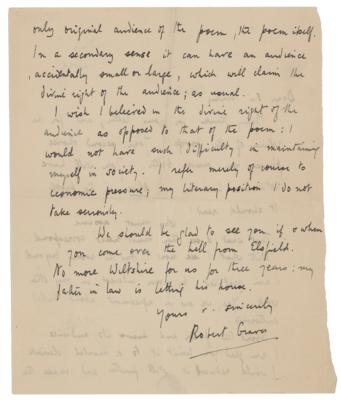 only original audience of the poem, the poem itself.
In a secondary sense it can have an audience
, accidentally small or large, which will claim the
divine right of the audience; as usual.
I wish I believed in the divine right of the
audience as opposed to that of the poem: I
would not have such difficulty in maintaining
myself in society. I refer merely of course to
economic pressure; my literary position I do not
take seriously.
We should be glad to see you if & when
you come over the hill from Elsfield.
No more Wiltshire for us for three years: my
father in law is letting his house.
Yours v. sincerely
Robert Graves